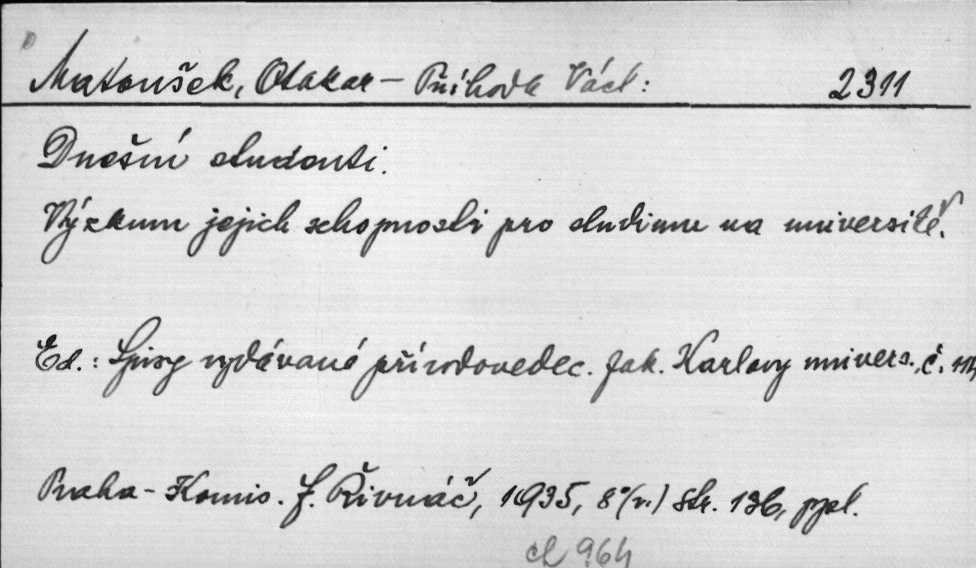 Matoušek, Otakar – Příhoda Václ: 2311
Dnešní studenti.
Výzkum jejich schopnosti pro studium na universitě.
Ed.: Spisy vydávané přírodovědec. fak. Karlovy univers., č.
Praha - Komis. f. Řivnáč, 1935, 8°(v.) str. 136, ppl.
964